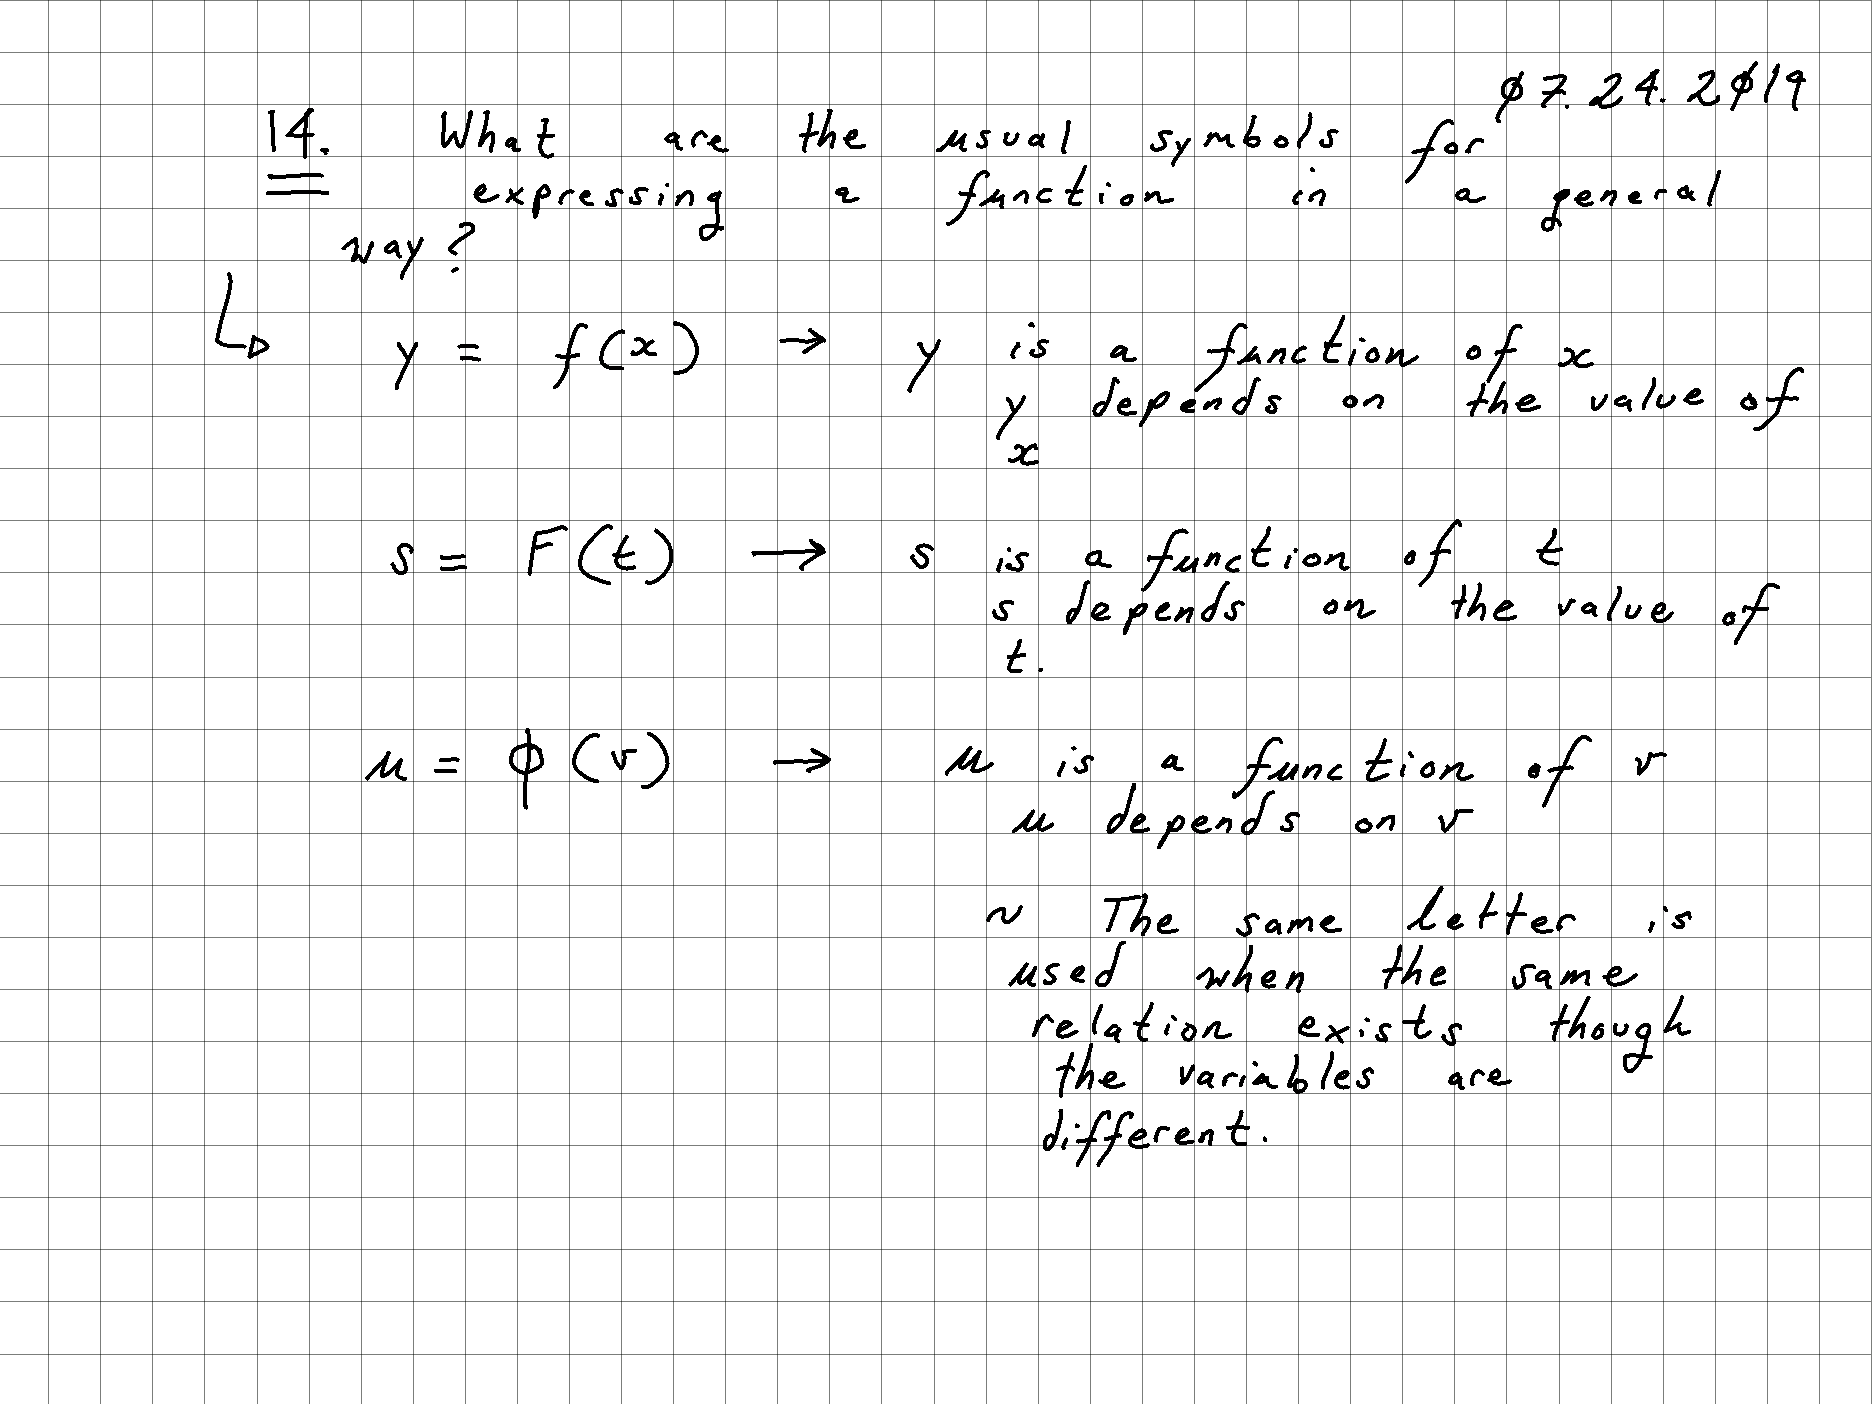 07.24.2019
14. What are the usual symbols for
expressing a function in a general
way?
y = f(x) → y is a function of x
y depends on the value of
x
s = F(t) → s is a function of t
s depends on the value of
t.
u = ϕ(v) → u is a function of v
u depends on v
~ The same letter is
used when the same
relation exists though
the variables are
different.